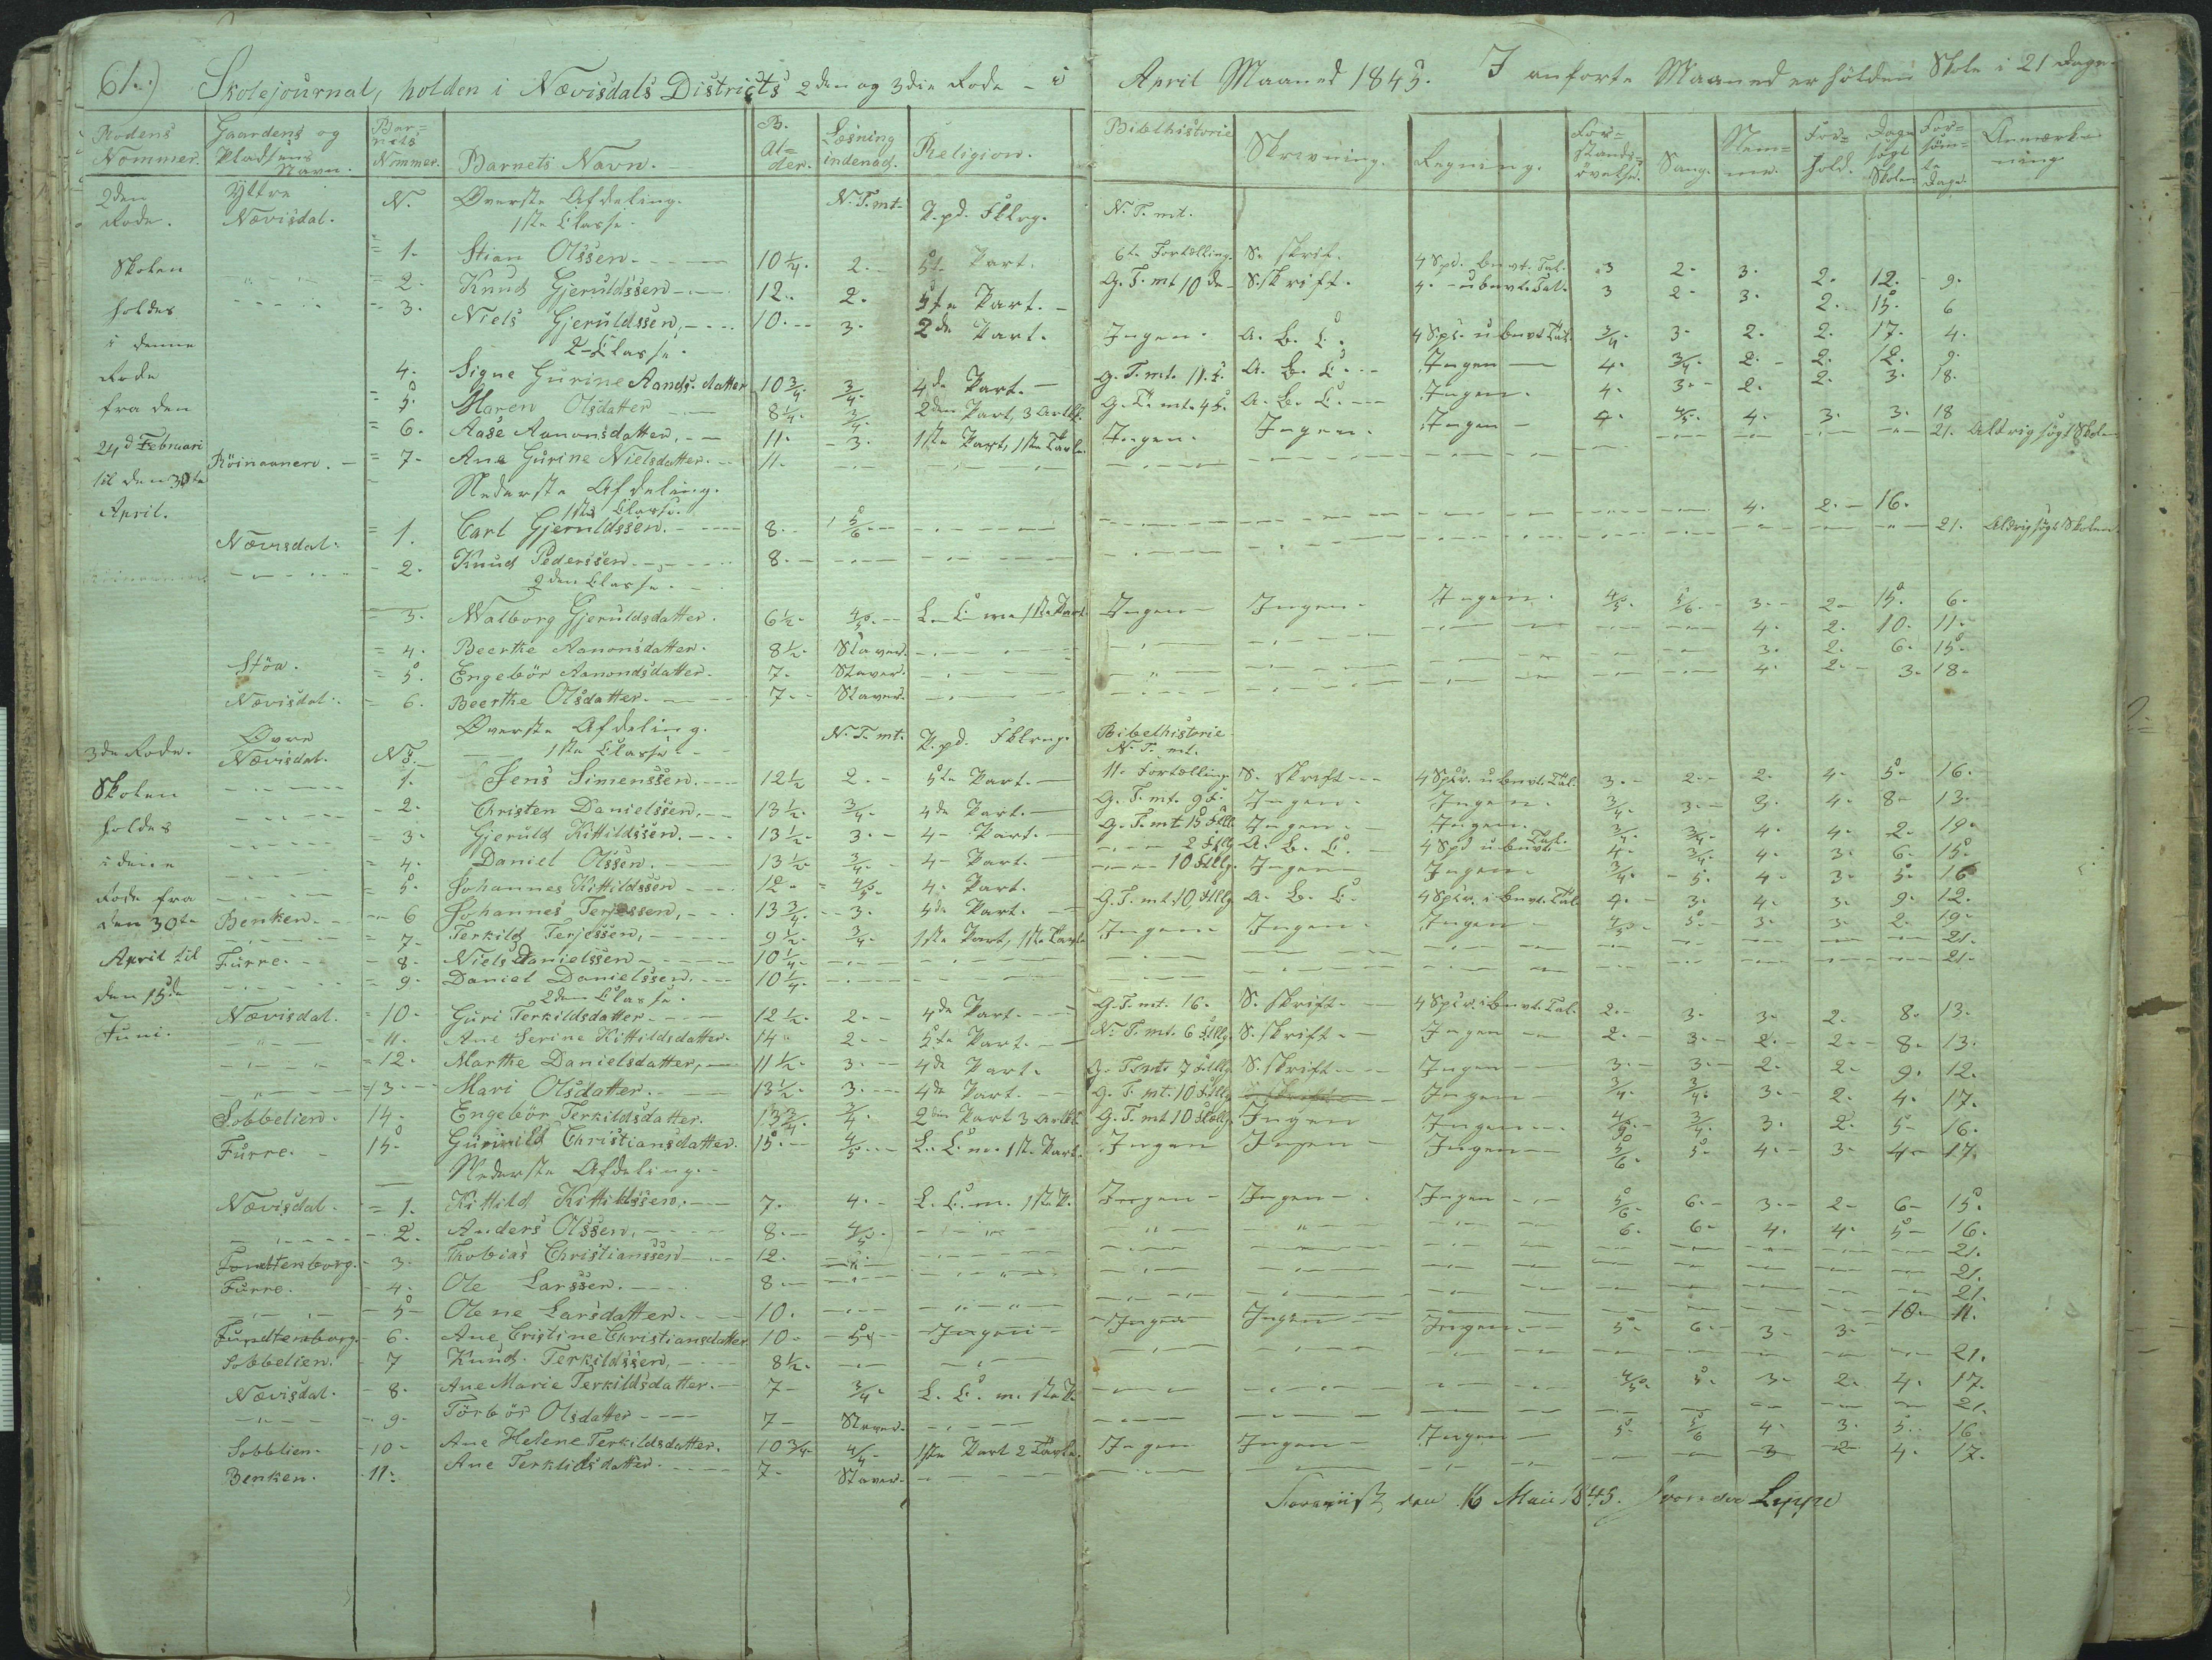 61.) Skolejournal, holden i Nævisdals Districts 2den og 3die Rode - i April Maaned 1845. I anførte Maaned er holden Skole i 21 Dage.
Rodens Nommer. Gaardens og Pladsens Navn. Barnets Nommer. Barnets Navn. B. Alder. Læsning indenad. Religion. Bibelhistorie Skrivning. Regning. Forstandsøvelse. Sang. Nemme. Forhold. Dage søgt Skolen Forsømte Dage. Anmærkning
2den Rode. Yttre Nævisdal. N. Øverste Afdeling. N. T. mt. P. pd. Fklrg. N. T. mt.
1ste Classe.
Skolen = 1. Stian Olssen. 10 1/4. 2. 5t. Part. 6te Fortælling. S. skrift. 4 Spec. Bnvt. Tal. 3 2. 3. 2. 12. 9.
holdes = 2. Knud Gjeruldssen 12. 2. 5te Part. G. T. mt 10 de S. skrift. 4. - ubnvt. Tal. 3 2. 3. 2. 15. 6
i denne 3. Niels Gjeruldssen, 10. 3. 2de Part. Ingen. A. B. C. 4 Spc. ubnvt Tal. 3/4. 3. 2. 2. 17. 4.
2-Classe.
Rode 4. Signe Gurine Aands.datter 10 3/4. 3/4. 4de Part. G. T. mt. 11. F. A. B. C. Ingen 4. 3/4. 2. 2. 12. 9.
fra den = 5. Maren Olsdatter 8 1/4. 3/4. 2den Part, 3 Artkl. G. T. mt. 4 F. A. B. C. Ingen. 4. 3. 2. 2. 3. 18.
24d Februari = 6. Aase Aanonsdatter. 11. 3. 1ste Part, 1ste Tavle. Ingen. Ingen. Ingen 4. 4/5. 4. 3. 3. 18
til den 30te Röinaanen. = 7. Ane Gurine Nielsdatter. 11. 21. Aldrig søgt Skolen
April. Nederste Afdeling.
1ste Classe.
Nævisdal. = 1. Carl Gjeruldssen. 8. 5/6. 4. 2. 16.
2. Knud Pederssen 8. 21. Aldrig søgt Skolen.
2den Classe.
= 3. Walborg Gjeruldsdatter. 6 1/2. 4/5. L. C. m 1ste Part. Ingen Ingen. Ingen. 4/5. 5/6. 3. 2 15. 6.
= 4. Beerthe Aanonsdatter. 8 1/2. Staver. 4. 2. 10. 11.
Stöa. = 5. Engebör Aanondsdatter. 7. Staver. 3. 2. 6. 15.
Nævisdal. = 6. Beerthe Olsdatter. 7. Staver. 4. 2. 3. 18.
Øverste Afdeling. N. T. mt. P. pd. Fklrng. Bibelhistorie
3de Rode. Øvre Nævisdal. No. 1ste Classe N. T. mt.
Skolen 1. Jens Simenssen. 12 1/2 2. 5te Part. 11. Fortælling. S. skrift 4 Spcr. ubnvt. Tal. 3. 2. 2. 4. 5. 16.
2. Christen Danielssen, 13 1/2. 3/4. 4de Part. G. T. mt. 9 F. Ingen. Ingen. 3/4. 3. 3. 4. 8. 13.
holdes = 3. Gjeruld Kittildssen. 13 1/2. 3. 4 Part. G. T. mt 15 Ftll Ingen. Ingen. 3/4. 3/4. 4. 4. 2. 19.
i denne = 4. Daniel Olssen. 13 1/2 3/4. 4 Part. 2 Ftllg. A. B. C. 4 Spd ubnvt. Tal. 4. 3/4. 4. 3. 6. 15.
Rode fra = 5. Johannes Kittildssen 12. 4/5. 4. Part. 10 Ftllg. Ingen Ingen. 3/4. 5. 4. 3. 5. 16
den 30te Benken. 6 Johannes Terjessen, 13 3/4. 3. 4de Part. G. T. mt. 10 Ftllg A. B. C. 4 Spcr. i bnvt. Tal. 4. 3. 4. 3. 9. 12.
= 7. Terkild Terjessen, 9 1/2. 3/4. 1ste Part, 1ste Tavle Ingen Ingen. Ingen 4/5. 5. 3. 3. 2. 19.
April til Furre. 8. Niels Danielssen 10 1/4. 21.
den 15de 9. Daniel Danielssen. 10 1/4. 21.
2den Classe.
Nævisdal. = 10. Guri Terkildsdatter 12 1/2. 2. 4de Part. G. T. mt. 16. S. skrift. 4 Spcr. i bnvt. Tal. 2. 3. 3. 2. 8. 13.
Juni. = 11. Ane Serine Kittildsdatter. 14 2. 5te Part. N. T. mt. 6 Ftllg. S. skrift Ingen 2. 3. 2. 2. 8. 13.
= 12. Marthe Danielsdatter, 11 1/2. 3. 4de Part. G. T. mt. 7 Ftllg S. skrift Ingen 3. 3. 2. 2. 9. 12.
= 13. Mari Olsdatter. 13 1/2. 3. 4de Part. G. T. mt. 10 Ftllg Ingen 3/4. 3/4. 3. 2. 4. 17.
Sobbelien. 14. Engebör Terkildsdatter. 13 3/4. 3/4. 2den Part 3 Artkl. G. T. mt 10 Ftllg. Ingen Ingen 4/5. 3/4. 3. 2. 5. 16.
Furre. 15. Gurinild Christiansdatter. 15. 4/5. L. C. m. 1ste Part. Ingen Ingen Ingen 5/6. 5. 4. 3. 4. 17.
Nederste Afdeling.
Nævisdal. = 1. Kittild Kittildssen. 7. 4. L. C. m. 1ste P. Ingen Ingen Ingen 5/6. 6. 3. 2. 6. 15.
2. Anders Olssen, 8. 4/5. 6. 6. 4. 4. 5. 16.
Fundtenborg. 3. Thobias Christianssen 12. 21.
Furre. 4. Ole Larssen. 8 21.
5 Olene Larsdatter. 10. 21.
Fundtenborg. 6. Ane Cristine Christiansdatter 10. 5. Ingen Ingen Ingen Ingen 5. 6. 3. 3. 10. 11.
Sobbelien. 7 Knud Terkildssen, 8 1/2. 21.
Nævisdal. 8. Ane Marie Terkildsdatter. 7 3/4. L. C. m. 1ste P. 4/5. 5. 3. 2. 4. 17.
9. Törbör Olsdatter 7 Staver. 21.
Sobblien. 10 Ane Helene Terkildsdatter. 10 3/4. 4/4. 1ste Part 2 Tavle. Ingen Ingen Ingen 5. 5/6 4. 3. 5. 16.
Benken. 11. Ane Terkildsdatter. 7. Staver. 3 2 4. 17.
Foreviist den 16 Maii 1845. von der Lippe